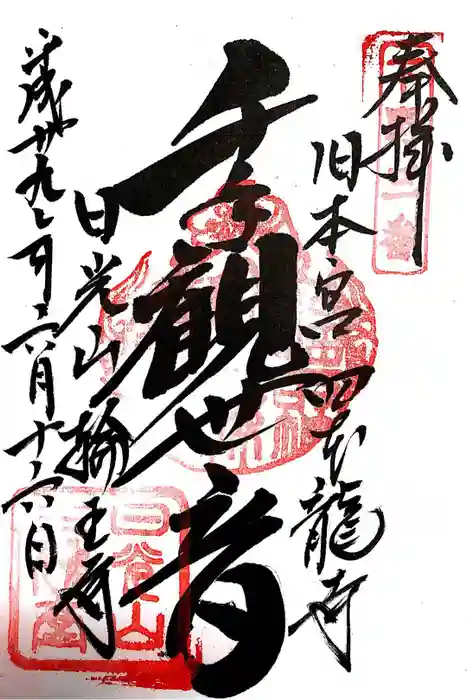 奉拝
旧本宮 四本龍寺
千手観世音
日光山 輪王寺
平成廿九年六月十六日